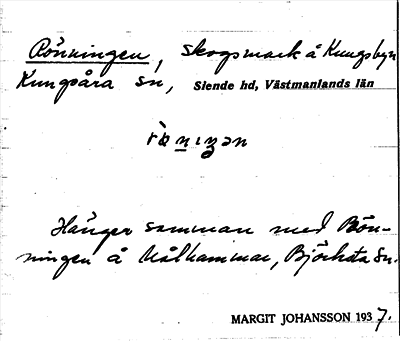 Rönningen, skogsmark å Kungsbyn
Kungsåra sn, Siende hd, Västmanlands län
Hänger samman med Rön-
ningen å Målhammar, Björksta sn.
MARGIT JOHANSSON 1937.